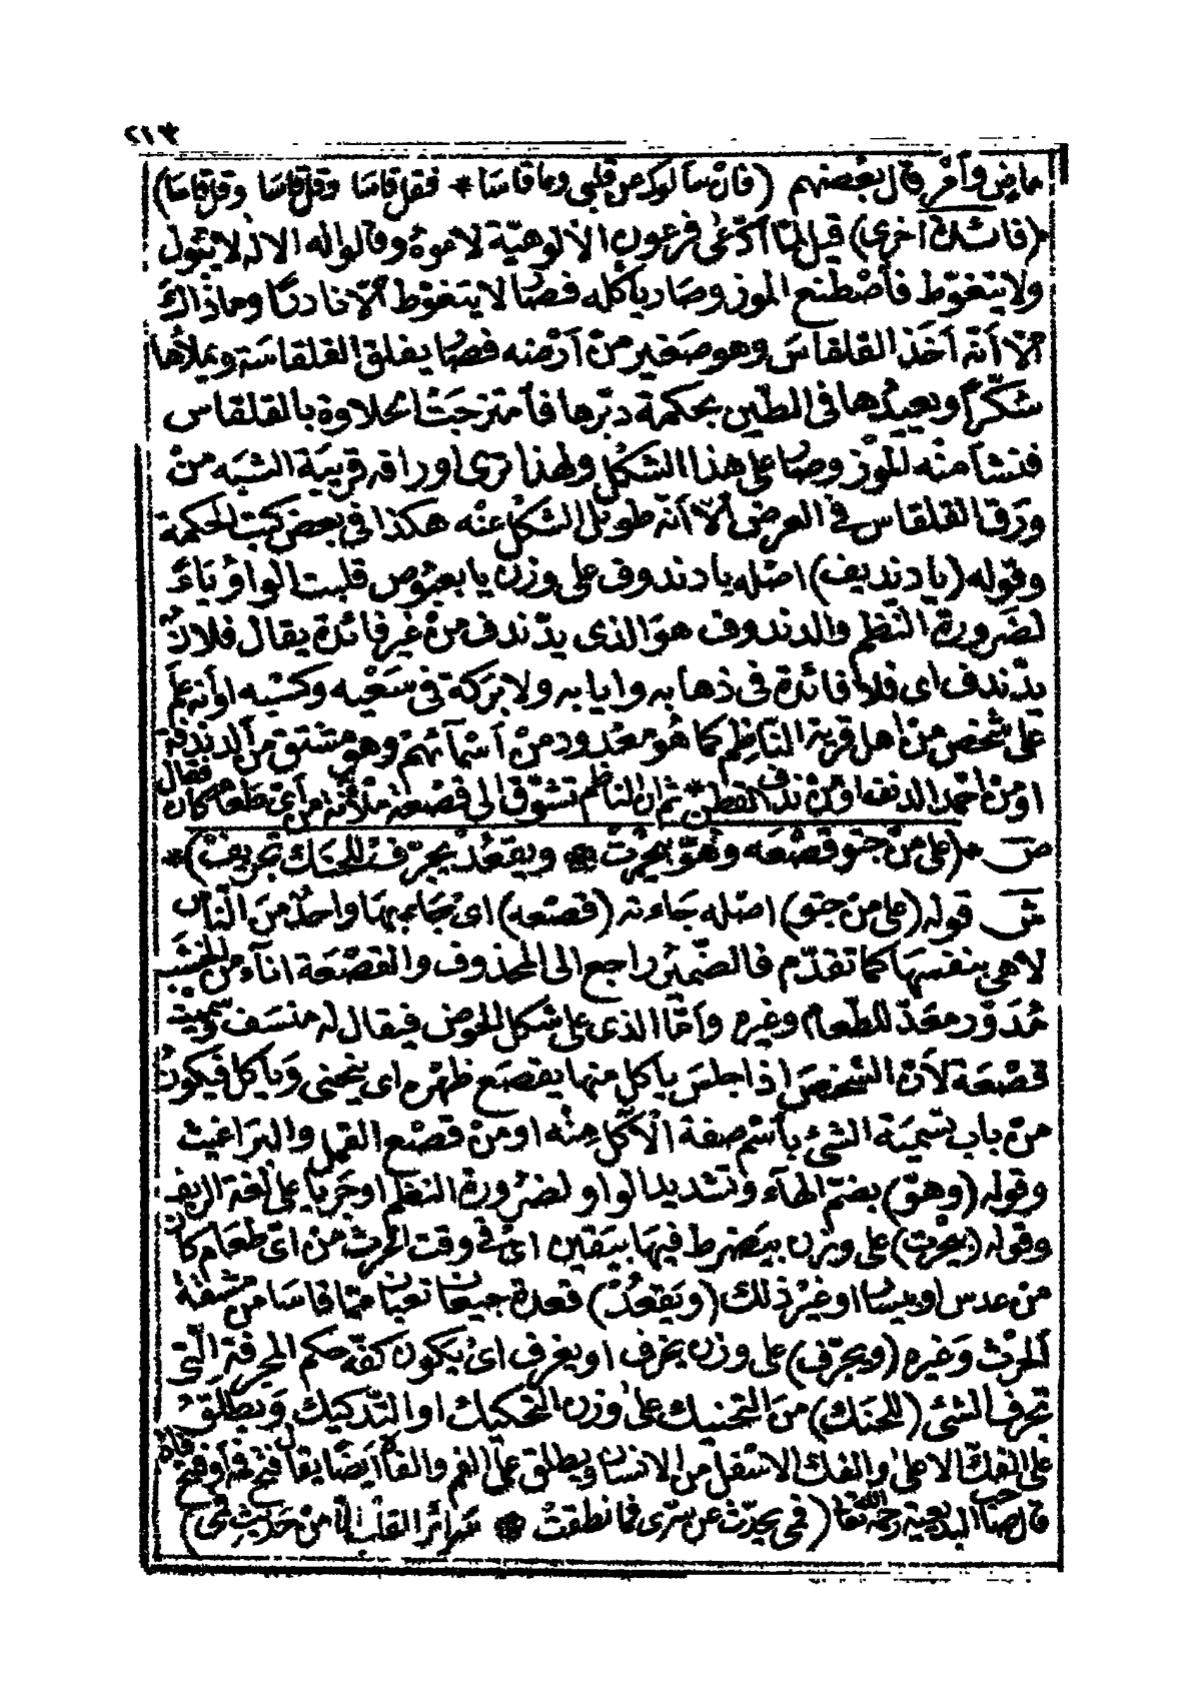 ٢١٣
ماض وأمر قال بعضهم (فان سألوك عن قلبي وما قاسا * فقل قاسا وقل قاسا وقل قاسا)
(فائدة أخرى) قيل لمّا ادّعى فرعون الألوهيّة لاموه وقالوا له الاله لا يبول
ولا يتغوّط فأصطنع الموز وصار يأكله فصار لا يتغوّط الّا نادرًا وما ذاك
الّا أنّه أخذ القلقاس وهو صغير من أرضه فصار يفلق القلقاسة ويملأها
سكّرًا ويعيدها فى الطّين بحكمة دبّرها فأمتزجت الحلاوة بالقلقاس
فنشأ منه الموز وصار على هذا الشكل ولهذا ترى أوراقه قريبة الشبه من
ورق القلقاس في العرض الّا أنّه طويل الشكل عنه هكذا فى بعض كتب الحكمة
وقوله (يا دنديف) اصله يا دندوف على وزن يا بعبوص قلبت الواو ياءً
لضرورة النّظم والدندوف هو الذى يدّندف من غير فائدة يقال فلان
يدّندف اى فلا فائدة فى ذهابه وايابه ولا بركة في سعيه وكسبه او أنه علم
على شخص من اهل قرية النّاظم كما هو معدود من أسمائهم وهو مشتق من الدندفة
او من احمد الدنفه او من ندف القطن * ثم ان الناظم تشوّق الى قصعة ملآنة من أيّ طعام كان فقال
ص * (على من جتو قصعه وهوّ بيحرت * ويقعد يجرّف للحنك تجريف) *
ش قوله (على من جتو) اصله جاءته (قصعه) اى جاء بها واحد من النّاس
لا هى بنفسها كما تقدّم فالضّمير راجع الى المحذوف والقصعة اناء من الخشب
مدوّر معدّ للطعام وغيره وأمّا الذى على شكل الحوض فيقال له منسف وسميت
قصعة لأن الشخص اذا جلس يأكل منها يقصع ظهره اى ينحنى ويأكل فيكون
من باب تسمية الشئ بأسم صفة الآكل منه او من قصع القمل والبراغيث
وقوله (وهوّ) بضم الهاء وتشديد الواو لضرورة النظم او جريا على لغة الريف
وقوله (بيحرت) على وزن بيضرط فيها بيقين اى فى وقت الحرث من اىّ طعام كان
من عدس او بيسار او غير ذلك (ويقعد) قعدة جيعان تعبان ممّا قاسا من مشقّة
الحرث وغيره (ويجرّف) على وزن يخرف او يغرف اى يكون كفّه حكم المجرفة الّتى
تجرف الشئ (للحنك) من التحنيك على وزن التحكيك او التّدكيك ويطلق
على الفكّ الاعلى والفك الاسفل من الانسان ويطلق على الفم والفاه أيضًا يقال فتح فمه أو فتح فاه
قال صاحب البديعية رحمه الله تعا (فمى يحدّث عن سرّى فما نطقت * سرائر القلب الّا من حديث فمى)